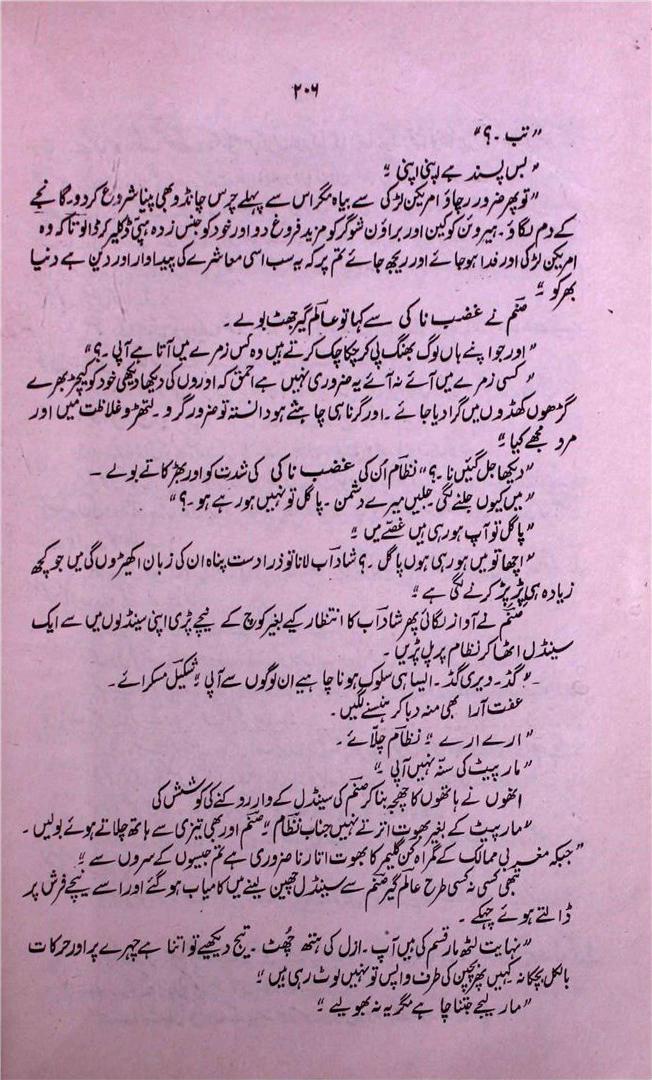 ۲۰۶
"تب ۔؟"
"بس پسند ہے اپنی اپنی ؂"
"تو پھر ضرور رچاؤ امریکن لڑکی سے بیاہ مگر اس سے پہلے چرس چانڈو بھی پینا شروع کردو۔ گانجے
کے دم لگاؤ۔ ہیروئن کوکین اور براؤن شوگر کو مزید فروغ دو اور خود کو جنس زدہ ہپی ڈکلیر کر ڈالو تاکہ وہ
امریکن لڑکی اور فدا ہو جائے اور ریجھ جائے تم پر کہ یہ سب اسی معاشرے کی پیداوار اور دین ہے دنیا
بھر کو ؂"
صنم نے غضب ناکی سے کہا تو عالم گیر جھٹ بولے ۔
"اور جو اپنے ہاں لوگ بھنگ پی کر چکاچک کرتے ہیں وہ کس زمرے میں آتا ہے آپی ۔؟"
"کسی زمرے میں آئے نہ آئے یہ ضروری نہیں ہے احمق کہ اوروں کی دیکھا دیکھی خود کو کیچڑ بھرے
گڑھوں کھڈوں میں گرا دیا جائے ۔ اور گرنا ہی چاہتے ہو دانستہ تو ضرور گرو ۔ لتھڑو غلاظت میں اور
مرو مجھے کیا ؂"
"دیکھا جل گئیں نا ۔؟" نظام اُن کی غضب ناکی کی شدت کو اور بھڑکاتے بولے ۔
"میں کیوں جلنے لگی جلیں میرے دشمن ۔ پاگل تو نہیں ہو رہے ہو ۔؟"
"پاگل تو آپ ہو رہی ہیں غصّے میں ؂"
"اچھا تو میں ہو رہی ہوں پاگل ۔؟ شاداب لانا تو ذرا دست پناہ ان کی زبان اکھیڑوں گی میں جو کچھ
زیادہ ہی پڑپڑ کرنے لگی ہے ؂"
صنم نے آواز لگائی پھر شاداب کا انتظار کیے بغیر کوچ کے نیچے پڑی اپنی سینڈلوں میں سے ایک
سینڈل اٹھا کر نظام پر پل پڑیں ۔
"گڈ ۔ ویری گڈ ۔ ایسا ہی سلوک ہونا چاہیے ان لوگوں سے آپی ؂" شکیل مسکرائے ۔
عفت آرا بھی منہ دبا کر ہنسنے لگیں ۔
"ارے ارے ؂" نظام چلّائے ۔
"مار پیٹ کی سنَد نہیں آپی ۔"
انھوں نے ہاتھوں کا چھجہ بنا کر صنم کی سینڈل کے وار روکنے کی کوشش کی
"مار پیٹ کے بغیر بھوت اترتے نہیں جناب نظام ؂" صنم اور بھی تیزی سے ہاتھ چلاتے ہوئے بولیں ۔
"جبکہ مغربی ممالک کے گمراہ کن گلیمر کا بھوت اتارنا ضروری ہے تم جیسوں کے سروں سے ؂"
تبھی کسی نہ کسی طرح عالم گیر صنم سے سینڈل چھین لینے میں کامیاب ہو گئے اور اسے نیچے فرش پر
ڈالتے ہوئے چہکے ۔
"نہایت لٹھ مار قسم کی ہیں آپ ۔ ازل کی ہتھ چھُٹ ۔ تیج دیکھیے تو اتنا ہے چہرے پر اور حرکات
بالکل بچکانہ کہیں پھر بچپن کی طرف واپس تو نہیں لوٹ رہی ہیں ؂"
"مار لیجے جتنا چاہے مگر یہ نہ بھولیے ؂"